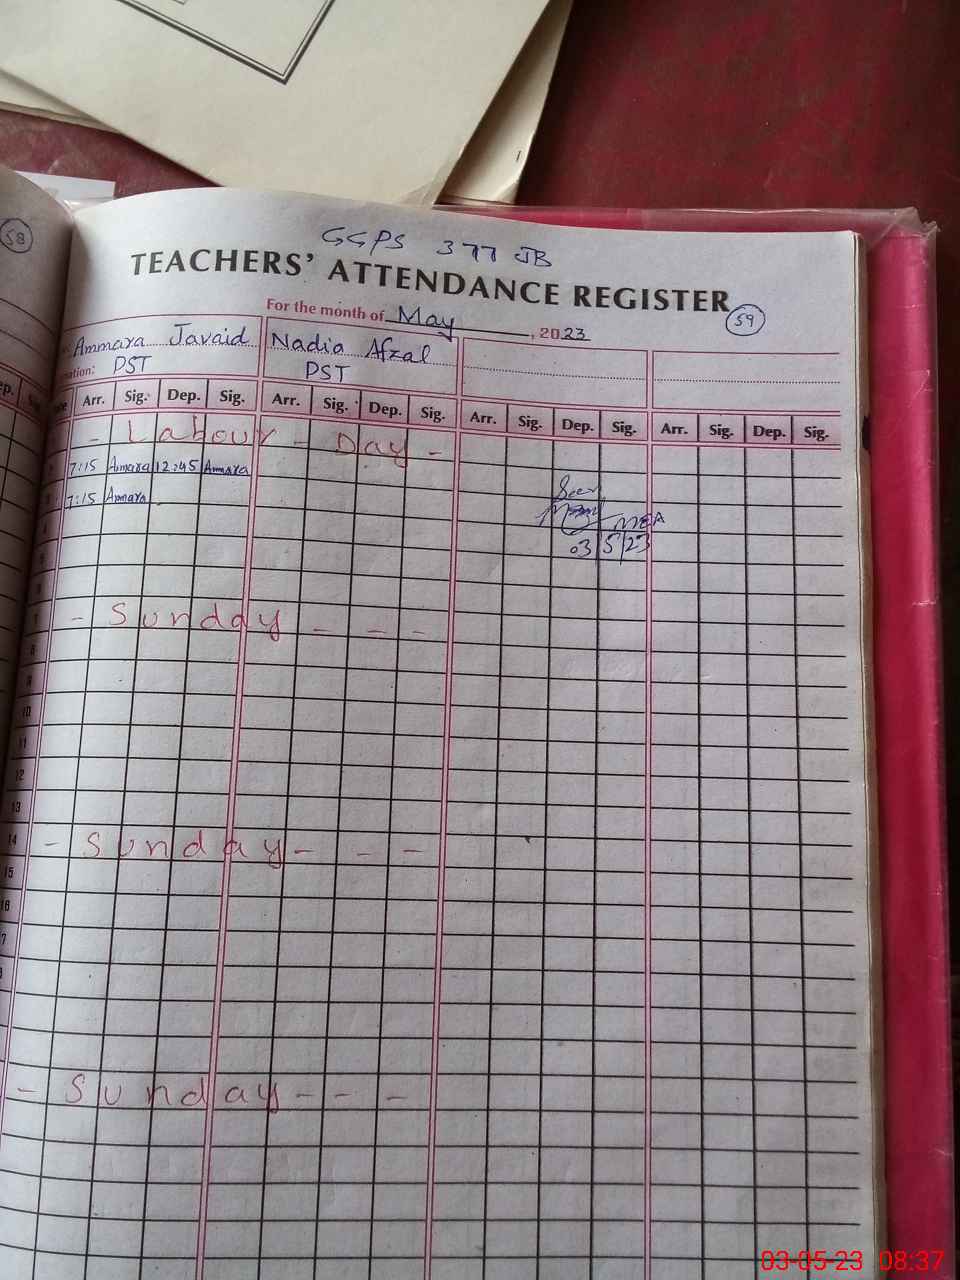 58
GGPS 377 JB
TEACHERS' ATTENDANCE REGISTER
59
For the month of May, 2023
Ammara Javaid Nadia Afzal
nation: PST PST
ep. Arr. Sig. Dep. Sig. Arr. Sig. Dep. Sig. Arr. Sig. Dep. Sig. Arr. Sig. Dep. Sig.
- Labour - Day -
7:15 Ammara 12:45 Ammara
3 7:15 Ammara
Seen
4 MEA
5 03 5 23
6
7 - Sunday - - -
8
9
10
11
12
13
14 - Sunday - - -
15
16
7
- Sunday - - -
03-05-23 08:37